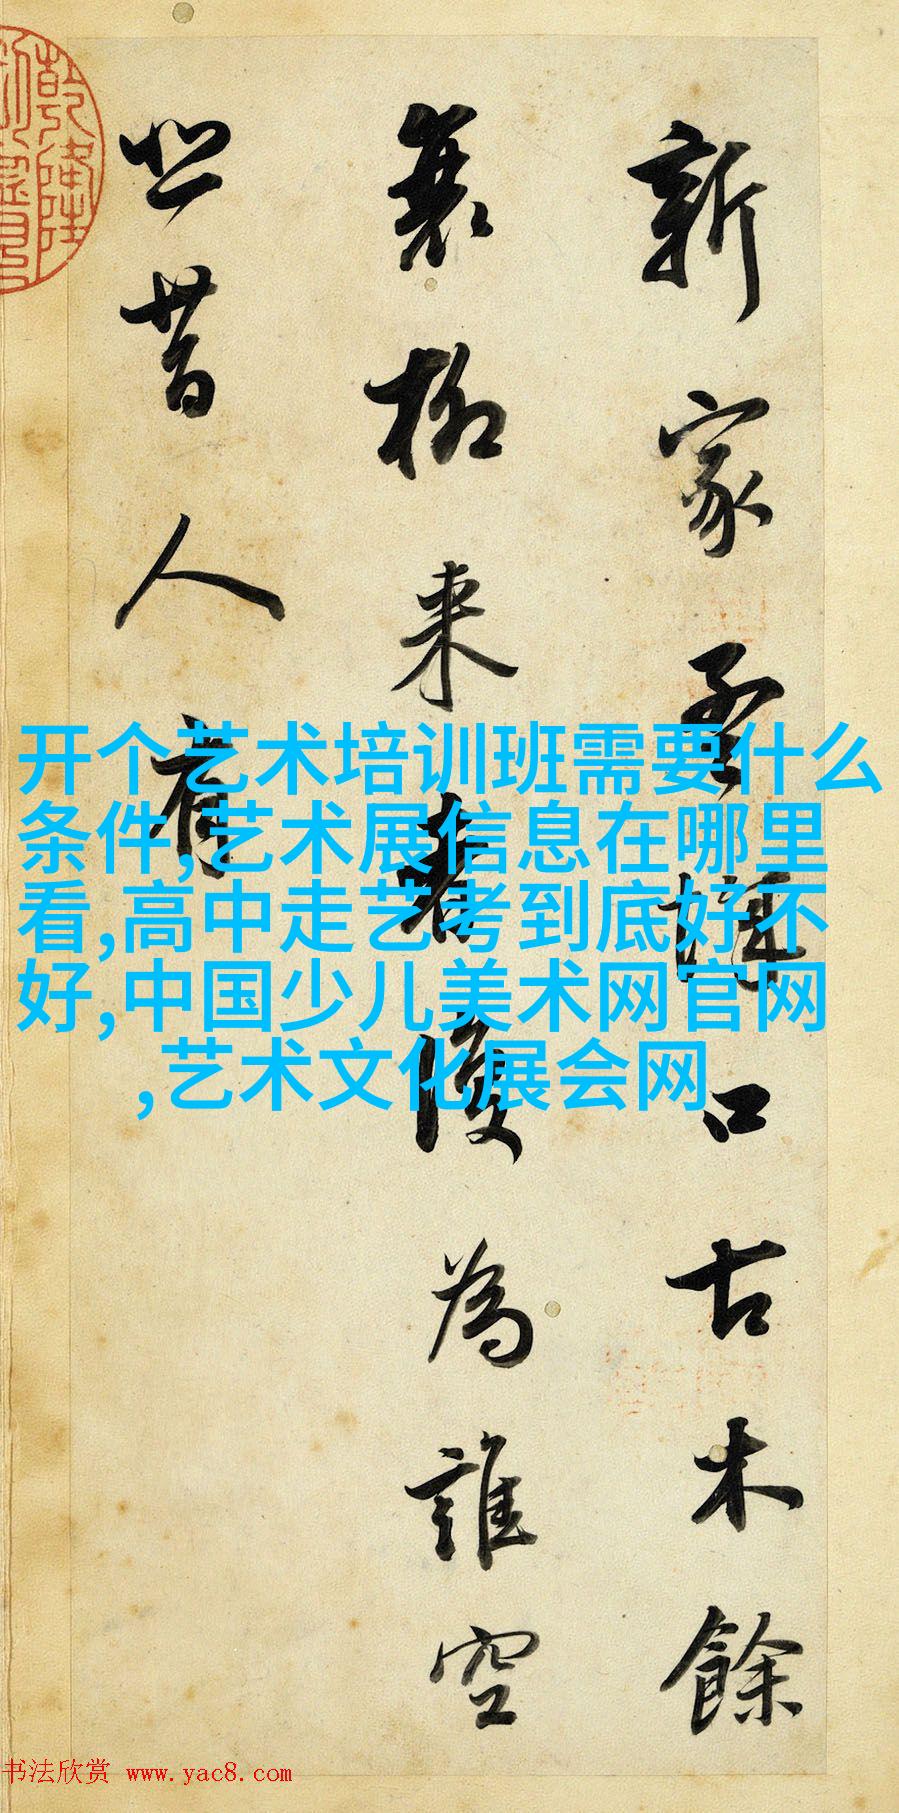 新家孟城口古木餘
衰柳来者復為誰空
悲昔人有
开个艺术培训班需要什么
条件,艺术展信息在哪里
看,高中走艺考到底好不
好,中国少儿美术网官网
,艺术文化展会网
书法欣赏 www.yac8.com